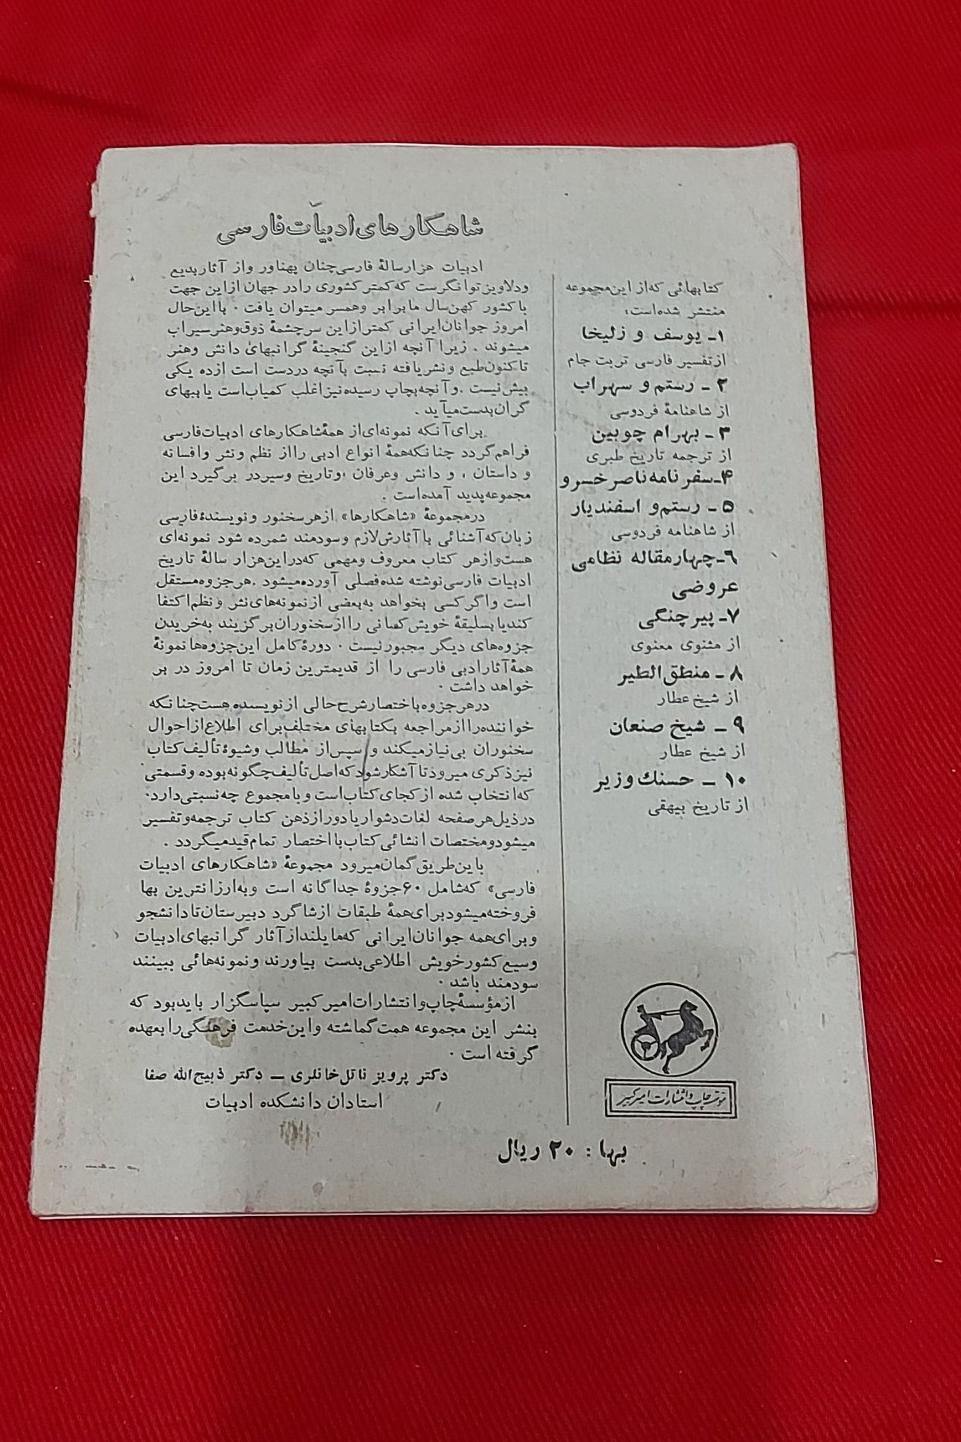 شاهکارهای ادبیات فارسی
ادبیات هزارسالهٔ فارسی چنان پهناور و از آثار بدیع
و دلاویز توانگرست که کمتر کشوری را در جهان از این جهت
با کشور کهن‌سال ما برابر و همسر میتوان یافت . با این حال
امروز جوانان ایرانی کمتر از این سرچشمهٔ ذوق و هنر سیراب
میشوند . زیرا آنچه از این گنجینهٔ گرانبهای دانش و هنر
تاکنون طبع و نشر یافته نسبت با آنچه در دست است از ده یکی
بیش نیست . و آنچه بچاپ رسیده نیز اغلب کمیاب است یا ببهای
گران بدست میآید .
برای آنکه نمونه‌ای از همهٔ شاهکارهای ادبیات فارسی
فراهم گردد چنانکه همهٔ انواع ادبی را از نظم و نثر و افسانه
و داستان ، و دانش و عرفان ، و تاریخ و سیر در بر گیرد این
مجموعه پدید آمده است .
در مجموعهٔ «شاهکارها» از هر سخنور و نویسندهٔ فارسی
زبان که آشنائی با آثارش لازم و سودمند شمرده شود نمونه‌ای
هست و از هر کتاب معروف و مهمی که در این هزار سالهٔ تاریخ
ادبیات فارسی نوشته شده فصلی آورده میشود . هر جزوه مستقل
است و اگر کسی بخواهد به بعضی از نمونه‌های نثر و نظم اکتفا
کند یا بسلیقهٔ خویش کسانی را از سخنوران برگزیند به خریدن
جزوه‌های دیگر مجبور نیست . دورهٔ کامل این جزوه‌ها نمونهٔ
همهٔ آثار ادبی فارسی را از قدیمترین زمان تا امروز در بر
خواهد داشت .
در هر جزوه باختصار شرح حالی از نویسنده هست چنانکه
خواننده را از مراجعه بکتابهای مختلف برای اطلاع از احوال
سخنوران بی‌نیاز میکند و سپس از مطالب و شیوهٔ تألیف کتاب
نیز ذکری میرود تا آشکار شود که اصل تألیف چگونه بوده و قسمتی
که انتخاب شده از کجای کتاب است و با مجموع چه نسبتی دارد.
در ذیل هر صفحه لغات دشوار یا دور از ذهن کتاب ترجمه و تفسیر
میشود و مختصات انشائی کتاب با اختصار تمام قید میگردد .
باین طریق گمان میرود مجموعهٔ «شاهکارهای ادبیات
فارسی» که شامل ۶۰ جزوهٔ جداگانه است و به ارزانترین بها
فروخته میشود برای همهٔ طبقات از شاگرد دبیرستان تا دانشجو
و برای همه جوانان ایرانی که مایلند از آثار گرانبهای ادبیات
وسیع کشور خویش اطلاعی بدست بیاورند و نمونه‌هائی ببینند
سودمند باشد .
از مؤسسهٔ چاپ و انتشارات امیرکبیر سپاسگزار باید بود که
بنشر این مجموعه همت گماشته و این خدمت فرهنگی را بعهده
گرفته است .
دکتر پرویز ناتل خانلری ـ دکتر ذبیح‌الله صفا
استادان دانشکده ادبیات
کتابهائی که از این مجموعه
منتشر شده است:
۱ـ یوسف و زلیخا
از تفسیر فارسی تربت جام
۲ ـ رستم و سهراب
از شاهنامهٔ فردوسی
۳ ـ بهرام چوبین
از ترجمه تاریخ طبری
۴ـ سفرنامه ناصرخسرو
۵ ـ رستم و اسفندیار
از شاهنامه فردوسی
۶ـ چهارمقاله نظامی
عروضی
۷ـ پیر چنگی
از مثنوی معنوی
۸ ـ منطق‌الطیر
از شیخ عطار
۹ ـ شیخ صنعان
از شیخ عطار
۱۰ ـ حسنك وزیر
از تاریخ بیهقی
مؤسسه چاپ و انتشارات امیرکبیر
بها : ۲۰ ریال